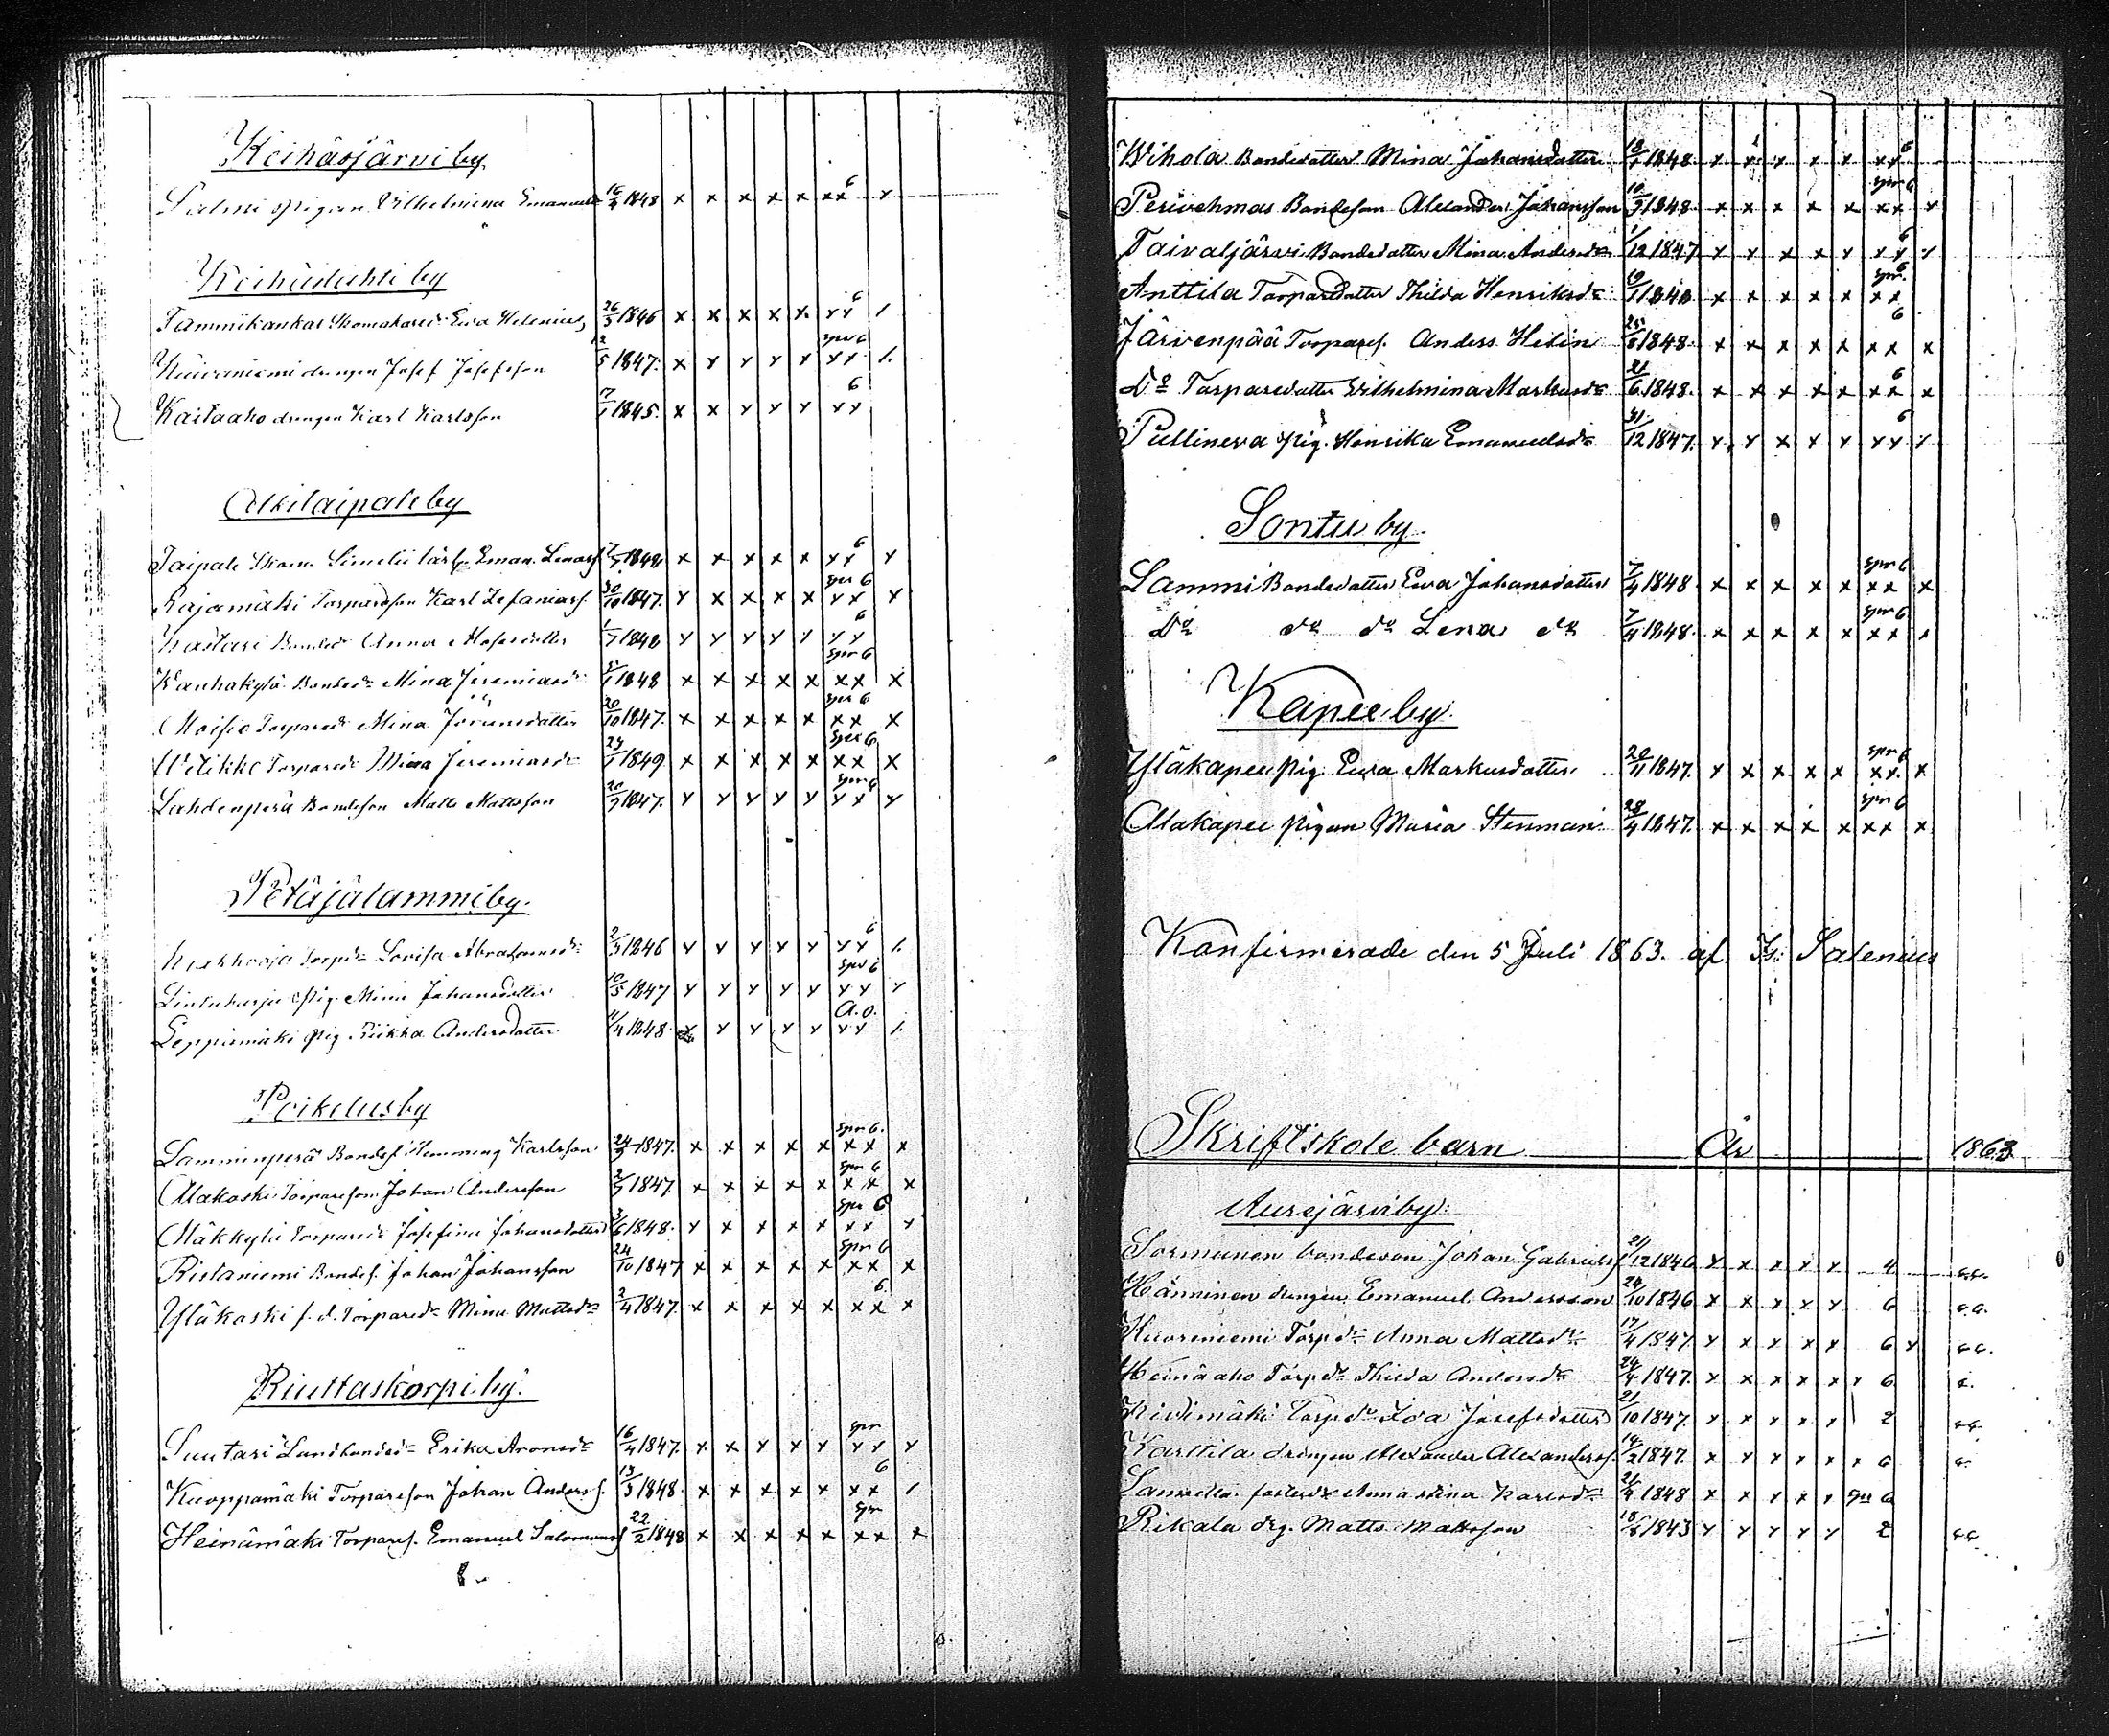 Keihäsjärvi by
Salmi pigan Vilhelmina Emanuels 16/4 1848 x x x x x xx 6 x
Keihäslahti by
Tammikankas Skomakared. Eva Helenius 26/3 1846 x x x x x xx 6 /.
drengen Josef Josefsson 12/5 1847. x x x x x xx spr 6 /.
Kaitaaho drengen Karl Karlsson 7/1 1845. x x x x x xx 6
Alkitaipale by
Taipale Skom. Simelii lärl. Eman. 7/5 1848 x x x x x xx 6 x
Rajamäki Torpareson Karl Zefaniass. 30/10 1847. x x x x x xx spr 6 x
Bonded. Anna Mosesdotter 1/7 1848 x x x x x xx 6
Wanhakylä Bonded. Mina Jeremiasd. 1848 x x x x x xx spr 6 x
Moisio Torpared. Mina Jöransdotter 20/10 1847. x x x x x xx spr 6 x
Torpared. Mina Jeremiasd. 23/1 1849 x x x x x xx spr 6 x
Lahdenperä Bondeson Matts Mattsson 20/9 1847. x x x x x xx spr 6 x
Petäjälammi by.
Torpd. Lovisa Abrahamsd. 2/3 1846 x x x x x xx 6 /.
Lintuharju Pig. Mina Johansdotter 10/5 1847 x x x x x xx spr 6 x
Leppimäki Pig. Riikka Andersdotter 11/4 1848. x x x x x xx a.o. /.
Poikelus by
Lamminperä Bondes. Hemming Karlsson 24/3 1847. x x x x x xx spr 6. x
Alakoski Torpareson Johan Andersson 2/7 1847. x x x x x xx spr 6 x
Mäkkylä Torpared. Josefina Johansdotter 3/6 1848. x x x x x xx spr 6 x
Ristaniemi Bondes. Johan Johansson 24/10 1847 x x x x x xx spr 6 x
Yläkoski f. d. Torpared. Mina Mattsd. 2/4 1847. x x x x x xx 6 x
Riuttaskorpi by.
Suutari Landbonded. Erika Aronsd. 16/4 1847. x x x x x xx spr x
Kuoppamäki Torpareson Johan Anderss. 13/3 1848. x x x x x xx 6 /
Heinämäki Torpares. Emanuel Salomonss 22/2 1848 x x x x x xx spr x
Wihola Bondedotter Mina Johansdotter 18/1 1848. x x x x x xx 6
Perivehmas Bondeson Alexander Johansson 10/3 1848. x x x x x xx spr 6 x
Taivaljärvi Bondedotter Mina Andersd. 1/12 1847 x x x x x xx 6 x
Anttila Torparedotter Thilda Henriksd. 19/1 1848 x x x x x xx spr 6
Järvenpää Torpares. Anders Hedin 25/8 1848. x x x x x xx 6 x
Do Torparedotter Wilhelmina Markusd. 21/6 1848. x x x x x xx 6 x
Pullineva pig. Henrika Emanuelsd. 31/12 1847. x x x x x xx 6 x
Sontu by.
Lammi Bondedotter Eva Johansdotter 7/4 1848. x x x x x xx spr 6 x
Do do do Lena do 7/4 1848. x x x x x xx spr 6 x
Kapee by.
Yläkapee Pig. Eva Markusdotter. 20/11 1847. x x x x x xx spr 6 x
Alakapee pigan Maria Stenman 28/4 1847. x x x x x xx spr 6 x
Konfirmerade den 5 Juli 1863. af Salenius
Skriftskole barn År 1863
Aurejärvi by.
Sormunen bondeson Johan Gabrielss. 21/12 1846 x x x x x 4
Hänninen drengen Emanuel Andersson 24/10 1846 x x x x x 6
Kuoreniemi Torpd. Anna Mattsd. 17/4 1847 x x x x x 6 x
Heinäaho Torpd. Thilda Andersd. 24/4 1847. x x x x x x 6
Kivimäki Torpd. Eva Josefsdotter 21/10 1847. x x x x x 2
Karttila drengen Alexander Alexanderss. 14/2 1847. x x x x x x 6
fosterd. Anna Stina Karlsd. 21/4 1848 x x x x x spr 6
Rikala drg. Matts Mattsson 18/8 1843 x x x x x 2